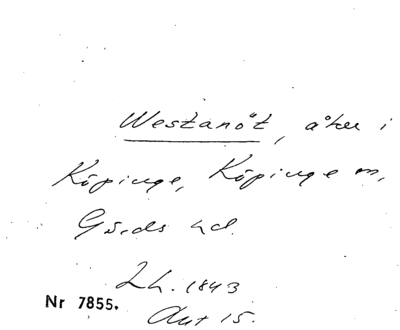 Westanöt, åker i
Köpinge, Köpinge m,
Gärds hd.
Lh. 1843
Akt 15.
Nr 7855.